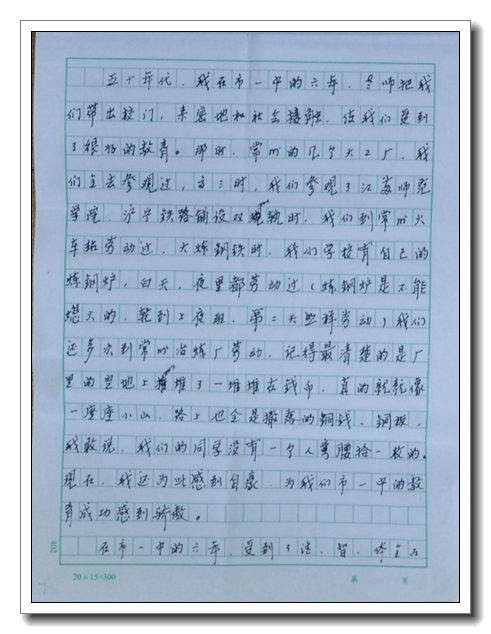 五十年代，我在市一中的六年，老师把我
们带出校门，亲密地和社会接触，使我们受到
了很好的教育。那时，常州的几个大工厂，我
们全去参观过，高三时，我们参观了江苏师范
学院，沪宁铁路铺设双轨时，我们到常州火
车站劳动过，大炼钢铁时，我们学校有自己的
炼钢炉，白天、夜里都劳动过（炼钢炉是不能
熄火的，轮到上夜班，第二天照样劳动）我们
还多次到常州冶炼厂劳动，记得最清楚的是厂
里的空地上堆了一堆堆古钱币，真的就像
一座座小山，路上也全是撒落的铜钱、铜板，
我敢说，我们的同学没有一个人弯腰拾一枚的。
现在，我还为此感到自豪，为我们市一中的教
育成功感到骄傲。
在市一中的六年，受到了德、智、体全
20×15=300 第 页